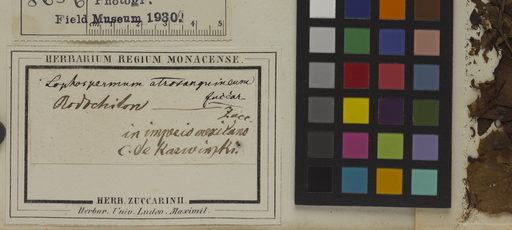 Photogr.
Field Museum 1930.
HERBARIUM REGIUM MONACENSE.
Lophospermum atrosanguineum
Zuccar.
Rodochilon Zucc.
in imperio mexicano
C. de Karwinski.
HERB. ZUCCARINII.
Herbar. Univ. Ludov. Maximil.
1 2 3 4 5